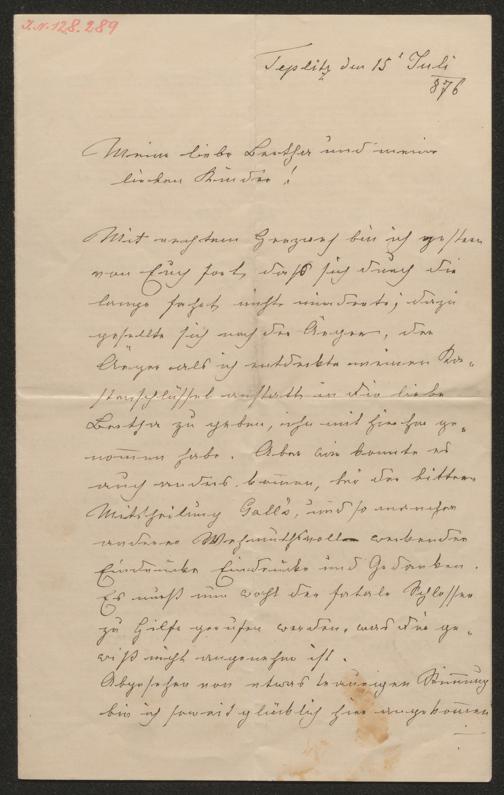 J.N. 128.289
Teplitz den 15' Juli
876
Meine liebe Bertha und meine
lieben Kinder!
Mit rechtem Herzweh bin ich gestern
von Euch fort, daß sich durch die
lange Fahrt nicht minderte; dazu
gesellte sich noch der Ärger, der
Ärger als ich entdeckte meinen Ka„
stenschlüssel anstatt in die liebe
Bertha zu geben, ihn mit hierher ge„
nommen habe. Aber wie konnte es
auch anders kommen, bei der bittern
Mittheilung Gall's, und so mancher
anderer Wehmuthsvoll wirkender
Eindrücke Eindrücke und Gedanken.
Es muß nun wohl der fatale Schlosser
zu Hilfe gerufen werden, was Dir ge„
wiß nicht angenehm ist.
Abgesehen von etwas trauriger Stimmung
bin ich soweit glücklich hier angekommen